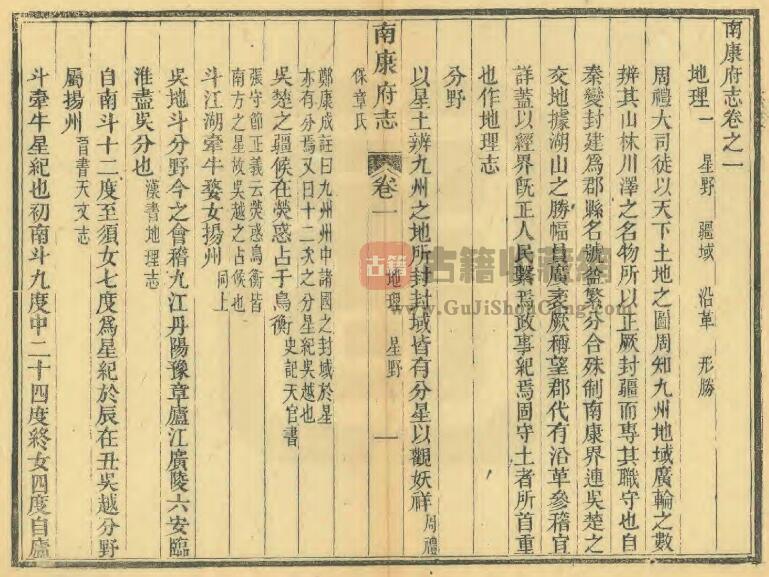 南康府志卷之一
地理一 星野 疆域 沿革 形勝
周禮大司徒以天下土地之圖周知九州地域廣輪之數
辨其山林川澤之名物所以正厥封疆而專其職守也自
秦變封建爲郡縣名號益繁分合殊制南康界連吳楚之
交地據湖山之勝幅員廣袤厥稱望郡代有沿革參稽宜
詳蓋以經界旣正人民繫焉政事紀焉固守土者所首重
也作地理志
分野
以星土辨九州之地所封封域皆有分星以觀妖祥 周禮
保章氏
南康府志 卷一 地理 星野 一
鄭康成註曰九州州中諸國之封域於星
亦有分焉又曰十二次之分星紀吳越也
吳楚之疆候在熒惑占于鳥衡 史記天官書
張守節正義云熒惑鳥衡皆
南方之星故吳越之占候也
斗江湖牽牛婺女揚州 同上
吳地斗分野今之會稽九江丹陽豫章廬江廣陵六安臨
淮盡吳分也 漢書地理志
自南斗十二度至須女七度爲星紀於辰在丑吳越分野
屬揚州 晉書天文志
斗牽牛星紀也初南斗九度中二十四度終女四度自廬
古籍 古籍收藏網
www.GuJiShouCang.com